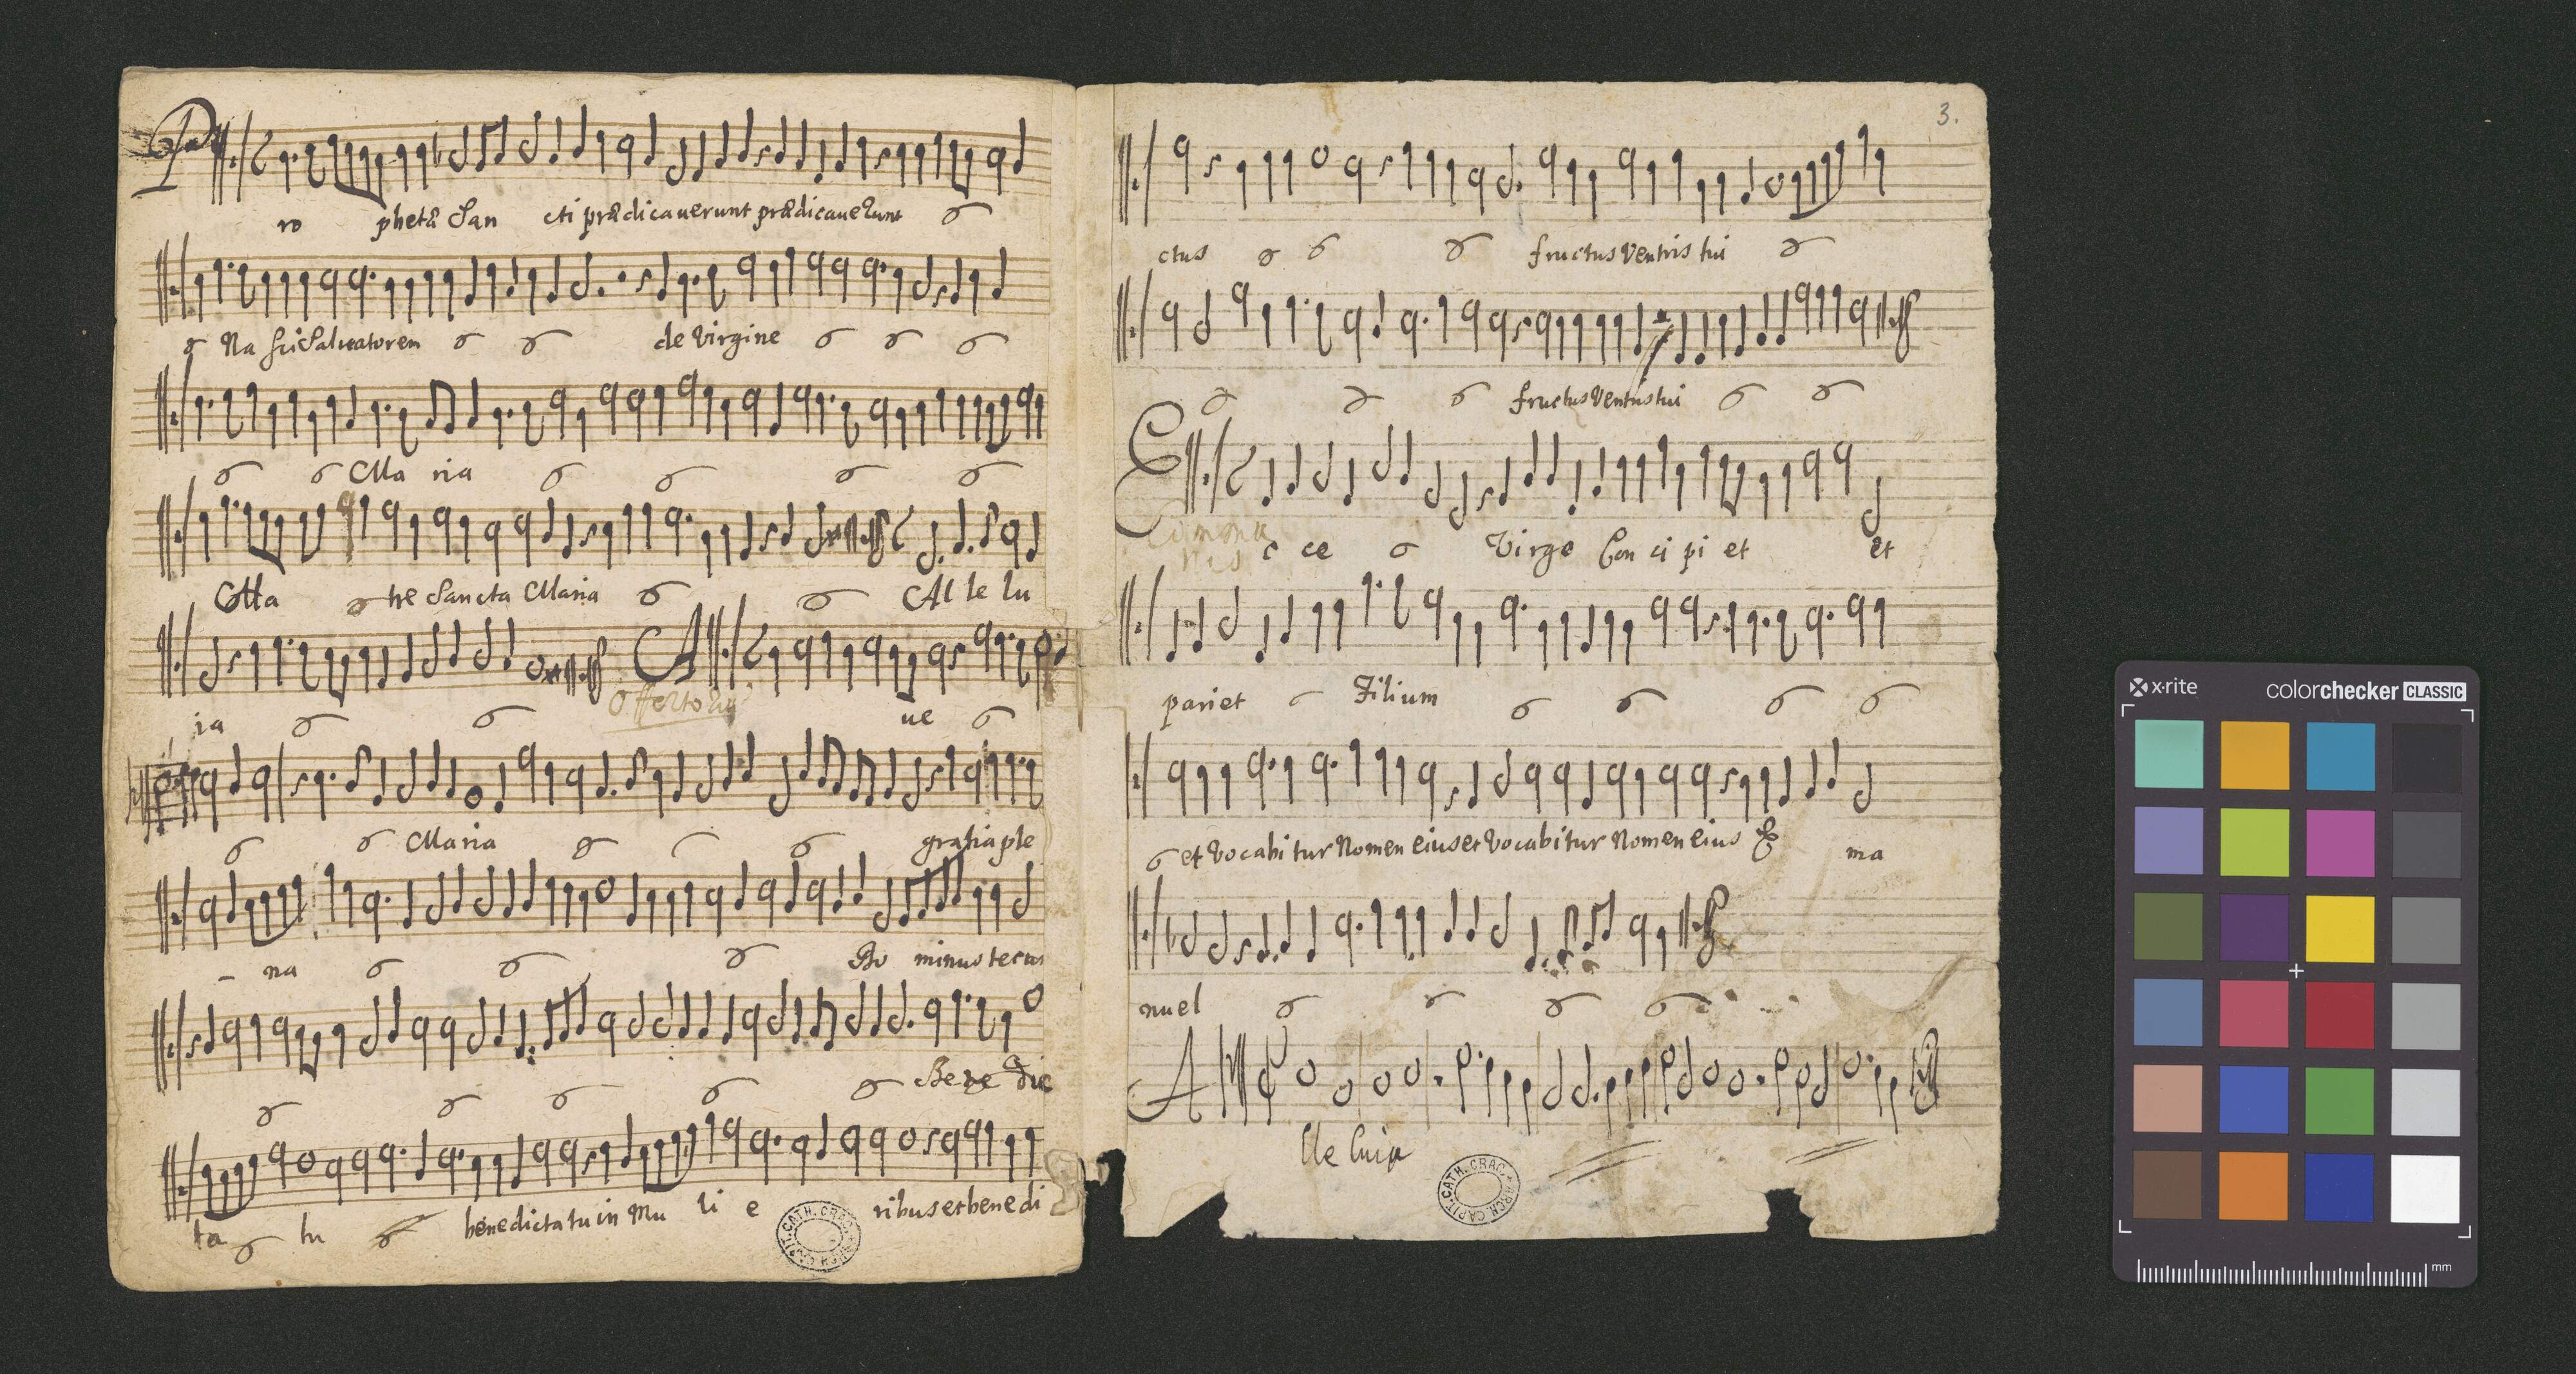 Pro phetæ San cti prædicauerunt prædicauerunt
Na sci Saluatorem de Virgine
Ma ria
Ma tre Sancta Maria Al le lu
ia A ue
Offertoriū
Maria gratia ple
na Do minus tecum
Bene dic
ta tu benedicta tu in Mu li e ribus et benedi
3.
ctus fructus Ventris tui
fructus Ventris tui
E c ce Virgo Con ci pi et et
Comonu
nis
pariet Filium
et Vocabitur Nomen eius et Vocabitur Nomen eius ma
nuel
A lle luia
ARCH. CAPIT. CATH. CRAC.
ARCH. CAPIT. CATH. CRAC.
x-rite colorchecker CLASSIC
mm